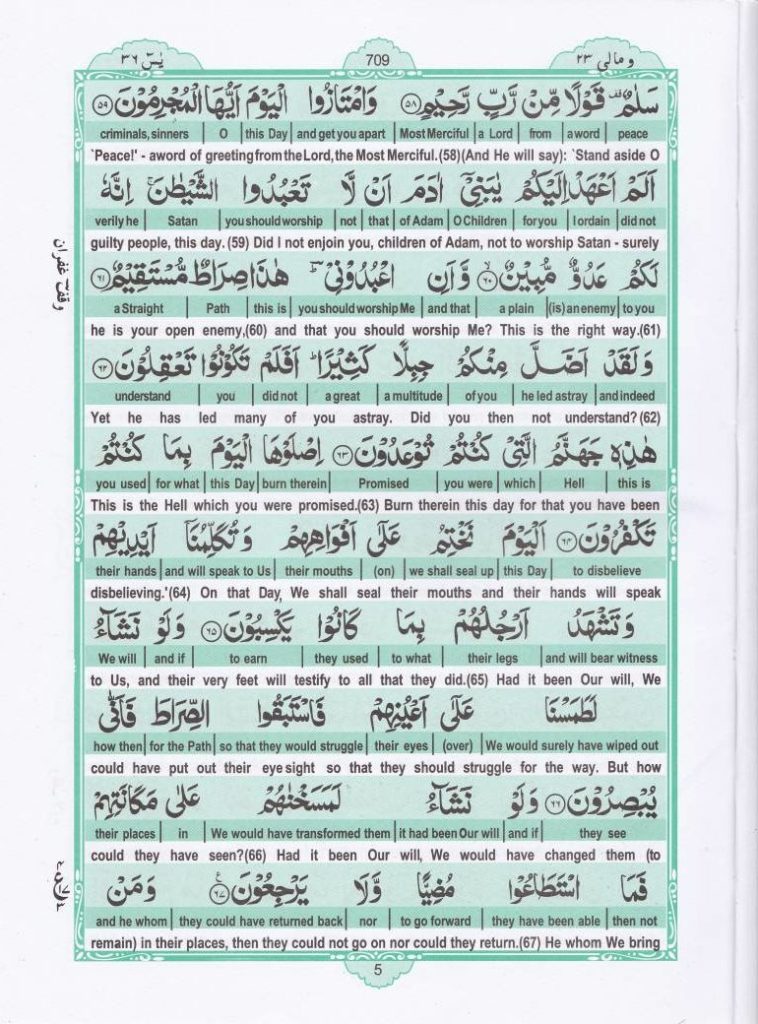 يٰسٓ ٣٦
709
وما لى ٢٣
سَلٰمٌ قَوْلًا مِّنْ رَّبٍّ رَّحِيْمٍ ۝٥٨ وَامْتَازُوا الْيَوْمَ اَيُّهَا الْمُجْرِمُوْنَ ۝٥٩
criminals,sinners | O | this Day | and get you apart | Most Merciful | a Lord | from | a word | peace
`Peace!' - aword of greeting from the Lord, the Most Merciful.(58)(And He will say): `Stand aside O
اَلَمْ اَعْهَدْ اِلَيْكُمْ يٰبَنِيْٓ اٰدَمَ اَنْ لَّا تَعْبُدُوا الشَّيْطٰنَ ۚ اِنَّهٗ
verily he | Satan | you should worship | not | that | of Adam | O Children | for you | I ordain | did not
guilty people, this day. (59) Did I not enjoin you, children of Adam, not to worship Satan - surely
لَكُمْ عَدُوٌّ مُّبِيْنٌ ۝٦٠ وَّاَنِ اعْبُدُوْنِيْ ؕ هٰذَا صِرَاطٌ مُّسْتَقِيْمٌ ۝٦١
وقف غفران
a Straight | Path | this is | you should worship Me | and that | a plain | (is) an enemy | to you
he is your open enemy,(60) and that you should worship Me? This is the right way.(61)
وَلَقَدْ اَضَلَّ مِنْكُمْ جِبِلًّا كَثِيْرًا ؕ اَفَلَمْ تَكُوْنُوْا تَعْقِلُوْنَ ۝٦٢
understand | you | did not | a great | a multitude | of you | he led astray | and indeed
Yet he has led many of you astray. Did you then not understand?(62)
هٰذِهٖ جَهَنَّمُ الَّتِيْ كُنْتُمْ تُوْعَدُوْنَ ۝٦٣ اِصْلَوْهَا الْيَوْمَ بِمَا كُنْتُمْ
you used | for what | this Day | burn therein | Promised | you were | which | Hell | this is
This is the Hell which you were promised.(63) Burn therein this day for that you have been
تَكْفُرُوْنَ ۝٦٤ اَلْيَوْمَ نَخْتِمُ عَلٰٓى اَفْوَاهِهِمْ وَتُكَلِّمُنَآ اَيْدِيْهِمْ
their hands | and will speak to Us | their mouths | (on) | we shall seal up | this Day | to disbelieve
disbelieving.'(64) On that Day, We shall seal their mouths and their hands will speak
وَتَشْهَدُ اَرْجُلُهُمْ بِمَا كَانُوْا يَكْسِبُوْنَ ۝٦٥ وَلَوْ نَشَآءُ
We will | and if | to earn | they used | to what | their legs | and will bear witness
to Us, and their very feet will testify to all that they did.(65) Had it been Our will, We
لَطَمَسْنَا عَلٰٓى اَعْيُنِهِمْ فَاسْتَبَقُوا الصِّرَاطَ فَاَنّٰى
how then | for the Path | so that they would struggle | their eyes | (over) | We would surely have wiped out
could have put out their eye sight so that they should struggle for the way. But how
يُبْصِرُوْنَ ۝٦٦ وَلَوْ نَشَآءُ لَمَسَخْنٰهُمْ عَلٰى مَكَانَتِهِمْ
their places | in | We would have transformed them | it had been Our will | and if | they see
could they have seen?(66) Had it been Our will, We would have changed them (to
فَمَا اسْتَطَاعُوْا مُضِيًّا وَّلَا يَرْجِعُوْنَ ۝٦٧ وَمَنْ
and he whom | they could have returned back | nor | to go forward | they have been able | then not
remain) in their places, then they could not go on nor could they return.(67) He whom We bring
5